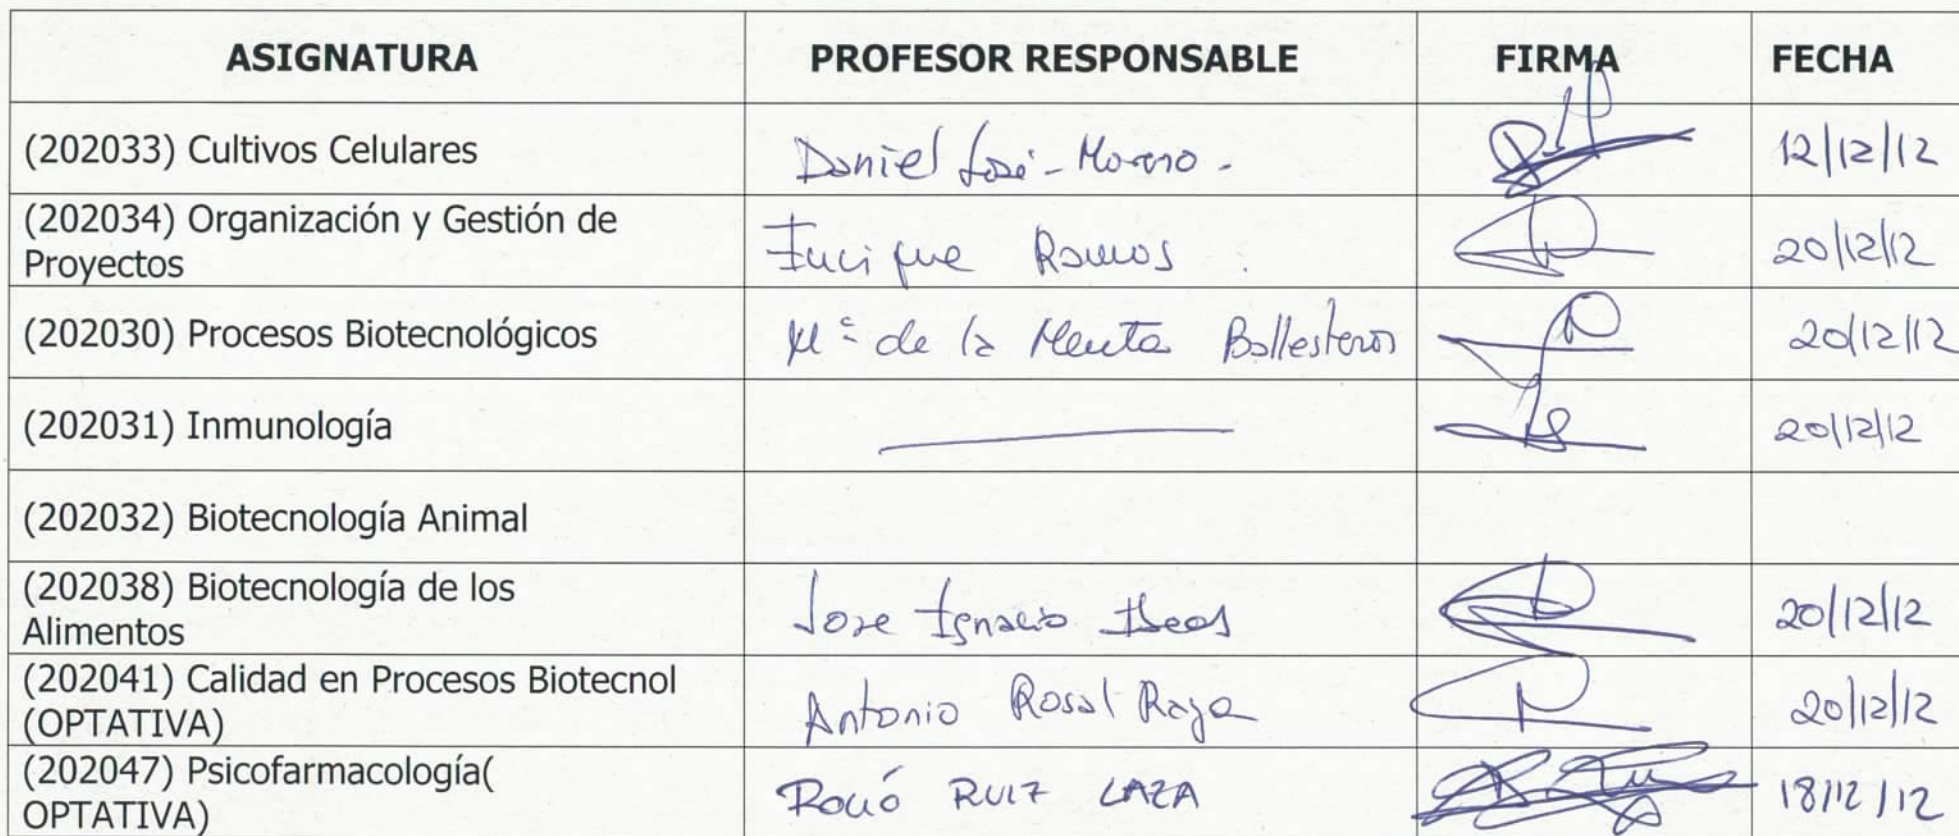 ASIGNATURA PROFESOR RESPONSABLE FIRMA FECHA
(202033) Cultivos Celulares Daniel José-Moreno. 12/12/12
(202034) Organización y Gestión de
Proyectos Enrique Ramos. 20/12/12
(202030) Procesos Biotecnológicos Mª de la Menta Ballesteros 20/12/12
(202031) Inmunología 20/12/12
(202032) Biotecnología Animal
(202038) Biotecnología de los
Alimentos Jose Ignacio 20/12/12
(202041) Calidad en Procesos Biotecnol
(OPTATIVA) Antonio Rosal Raya 20/12/12
(202047) Psicofarmacología(
OPTATIVA) Roció RUIZ LAZA 18/12/12